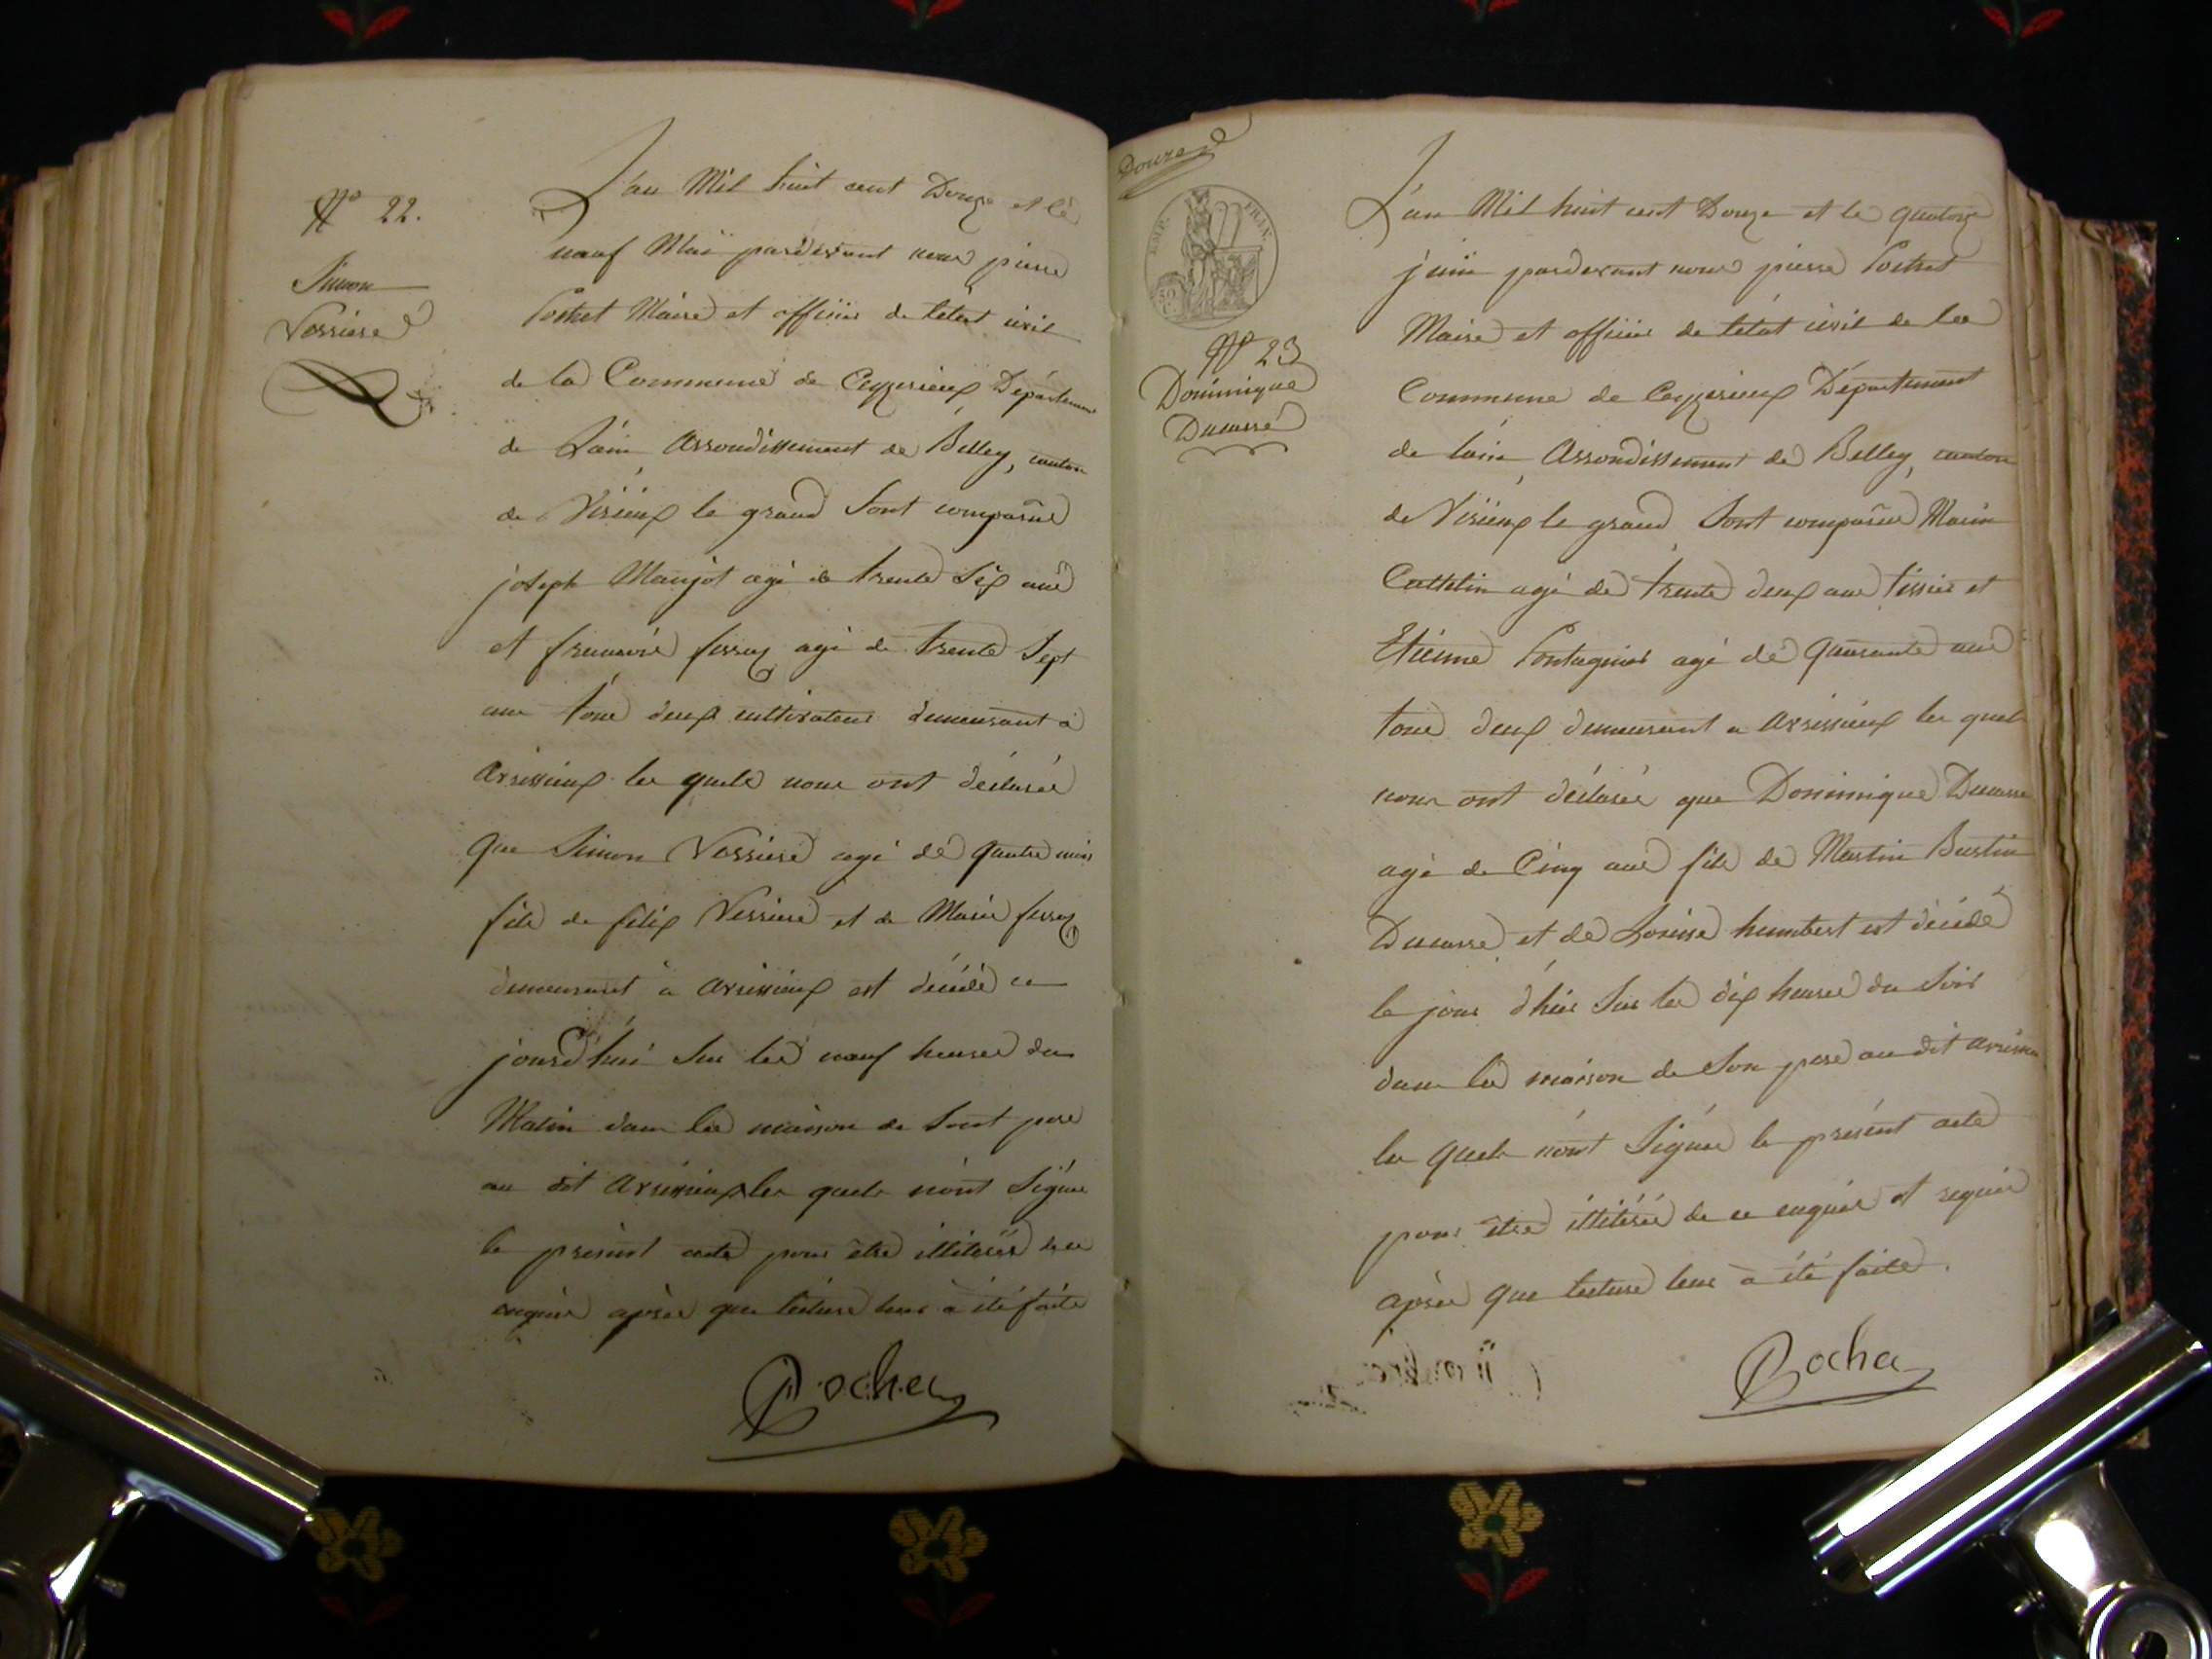 N° 22.
Simon
Verriere
L'an Mil huit cent Douze et le
neuf Mai pardevant nous pierre
Maire et officier de létat civil
de la Commune de Ceyzerieux Département
de Lain, Arrondissement de Belley, canton
de Virieux le grand Sont comparus
joseph Maujot agé de trente Six ans
et agé de trente Sept
ans tous deux cultivateurs demeurant à
Avrissieux les quels nous ont déclarés
que Simon Verriere agé de quatre mois
fils de félix Verriere et de Marie
demeurant à avrissieux est décédé ce
jourd'hui Sur les neuf heures du
Matin dans la maison de Sont pere
au dit Avrissieux les quels n'ont Signés
le présent acte pour être illitérés de ce
enquis après que lecture leur à été faite
Rochet
Douze
EMP. FRAN.
50
C.
N° 23
Dominique
Ducarre
L'an Mil huit cent Douze et le quatorze
juin pardevant nous pierre
Maire et officier de létat civil de la
Commune de Ceyzerieux Département
de lain, Arrondissement de Belley, canton
de Virieux le grand Sont comparus Marin
Cathelin agé de trente deux ans tissier et
Etienne Pontagnier agé de quarante ans
tous deux demeurant a Avrissieux les quels
nous ont déclarés que Dominique Ducarre
agé de Cinq ans fils de Martin Bastin
Ducarre et de Louise humbert est décédé
le jour d'hier Sur les dix heures du Soir
dans la maison de Son pere au dit avrissieux
les quels n'ont Signés le présent acte
pour être illitérés de ce enquis et requis
après que lecture leur à été faite.
Rochet